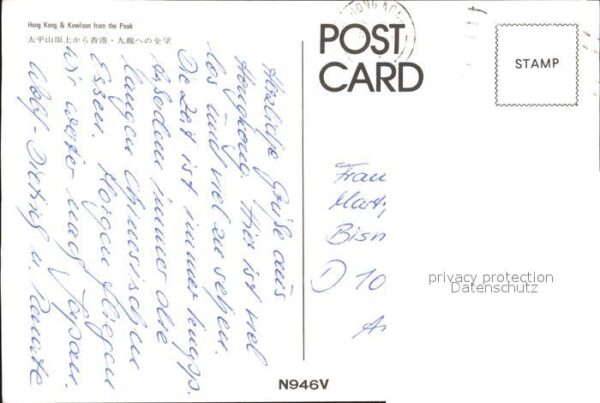 Hong Kong & Kowloon from the Peak
太平山頂上から香港・九龍への全望
Herzliche Grüße aus
Hongkong. Hier ist viel
los und viel zu sehen.
Die Zeit ist immer knapp.
immer die
langen chinesischen
Essen. Morgen fliegen
wir weiter nach Japan.
Wolf-Dietrich u. Renate
HONG KONG
POST
CARD
STAMP
Frau
Mart
Bism
D 10
privacy protection
Datenschutz
N946V